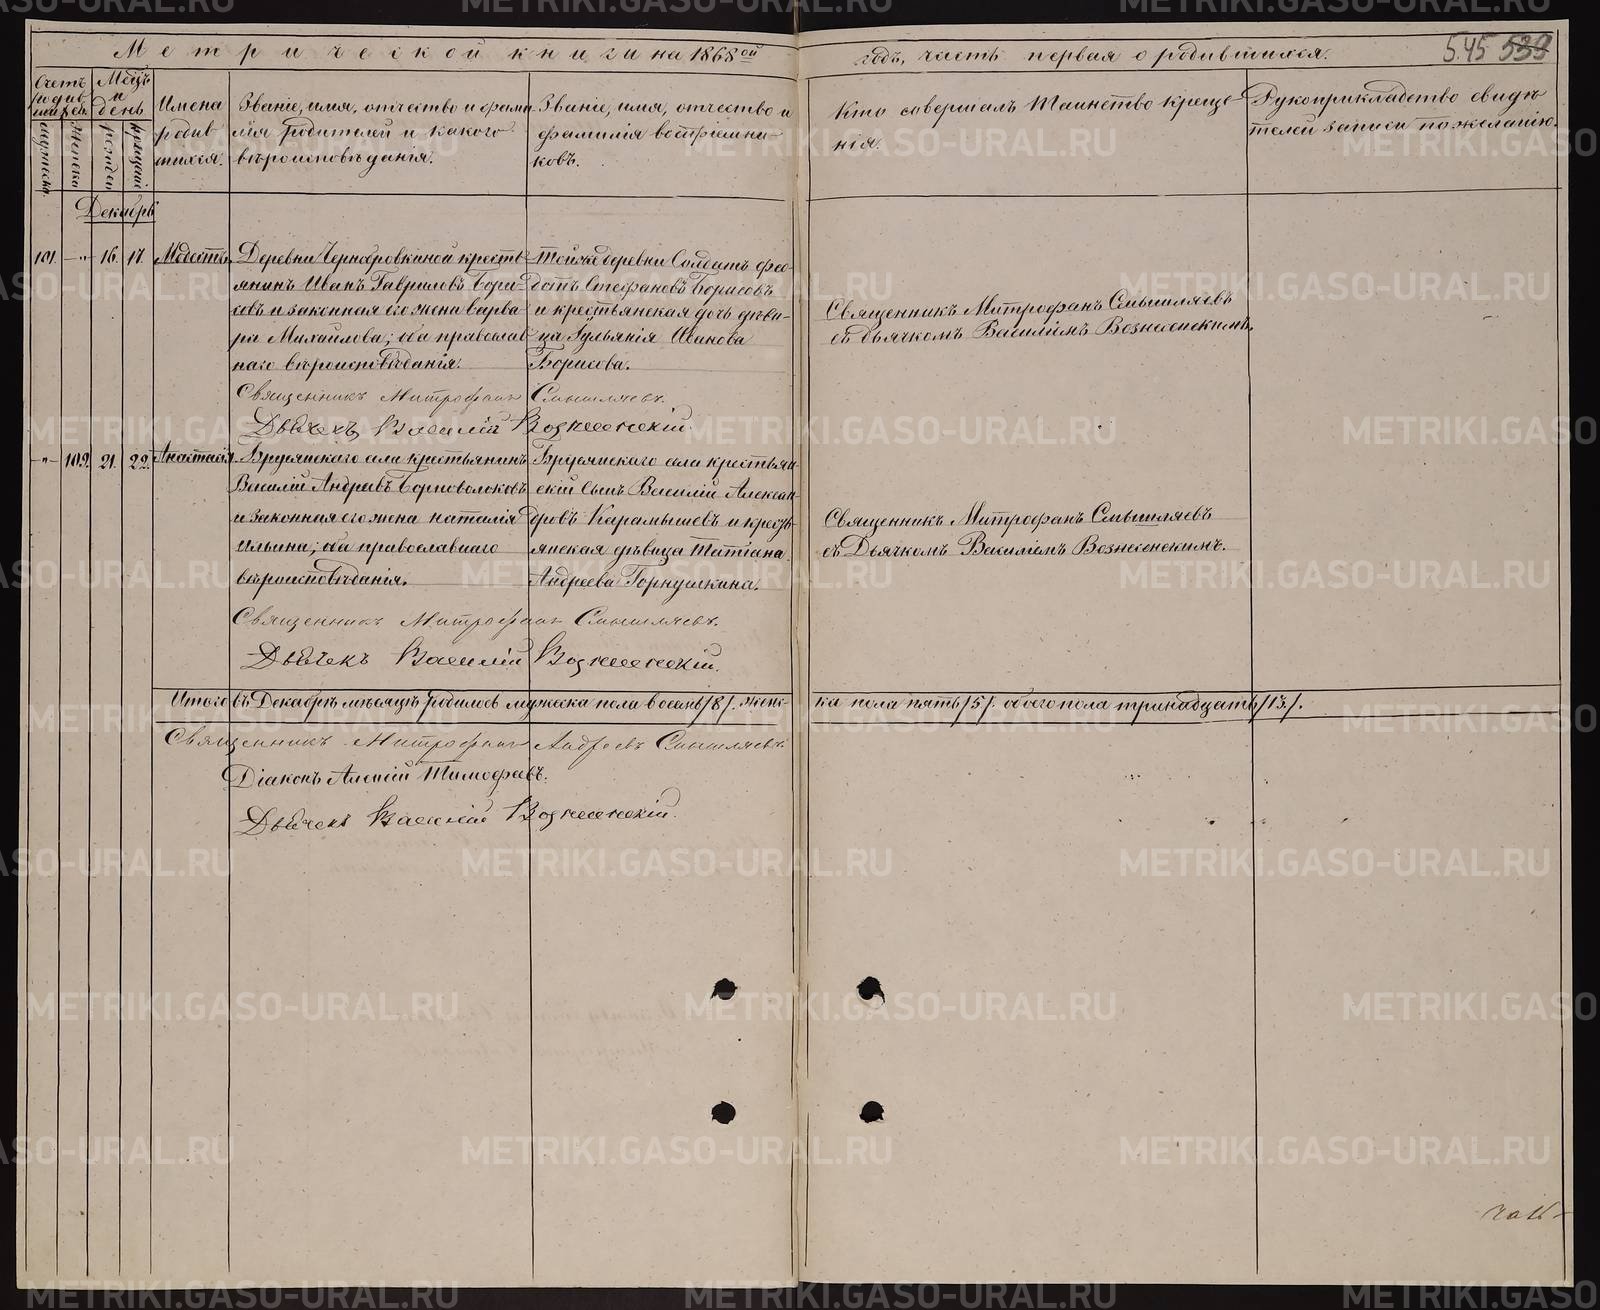 Метрической книги на 1868ой годъ, часть первая о родившихся.
545 539
Счетъ родившихся
Мѣсяцъ и день
мужеска
женска
рожденія
крещенія
Имена родившихся.
Званіе, имя, отчество и фамилія родителей и какого вѣроисповѣданія.
Званіе, имя, отчество и фамилія воспріемниковъ.
Кто совершалъ Таинство крещенія.
Рукоприкладство свидѣтелей записи по желанію.
Декабрь
101. —„— 16. 17. Модестъ.
Деревни Чернобровкиной кресть-
янинъ Иванъ Гавриловъ Бори-
совъ и законная его жена Варва-
ра Михайлова; оба православ-
наго вѣроисповѣданія.
Той же деревни Солдатъ Фео-
дотъ Стефановъ Борисовъ
и крестьянская дочь дѣви-
ца Іульянія Иванова
Борисова.
Священникъ Митрофанъ Смышляевъ
съ дьячкомъ Василіемъ Вознесенскимъ.
Священникъ Митрофанъ Смышляевъ.
Дьячекъ Василій Вознесенскій.
—„— 109. 21. 22. Анастасія.
Бруянскаго села крестьянинъ
Василій Андреевъ Черноволоковъ
и законная его жена Наталія
Ильина; оба православнаго
вѣроисповѣданія.
Бруянскаго села крестьян-
скій сынъ Василій Алексан-
дровъ Карамышевъ и кресть-
янская дѣвица Татіана
Андреева Горнушкина.
Священникъ Митрофанъ Смышляевъ
съ Дьячкомъ Василіемъ Вознесенскимъ.
Священникъ Митрофанъ Смышляевъ.
Дьячекъ Василій Вознесенскій.
Итого въ Декабрѣ мѣсяцѣ родилось мужеска пола восемь /8/. женска пола пять /5/. обоего пола тринадцать /13/.
Священникъ Митрофанъ Андреевъ Смышляевъ.
Діаконъ Алексій Тимофеевъ.
Дьячекъ Василій Вознесенскій.
METRIKI.GASO-URAL.RU